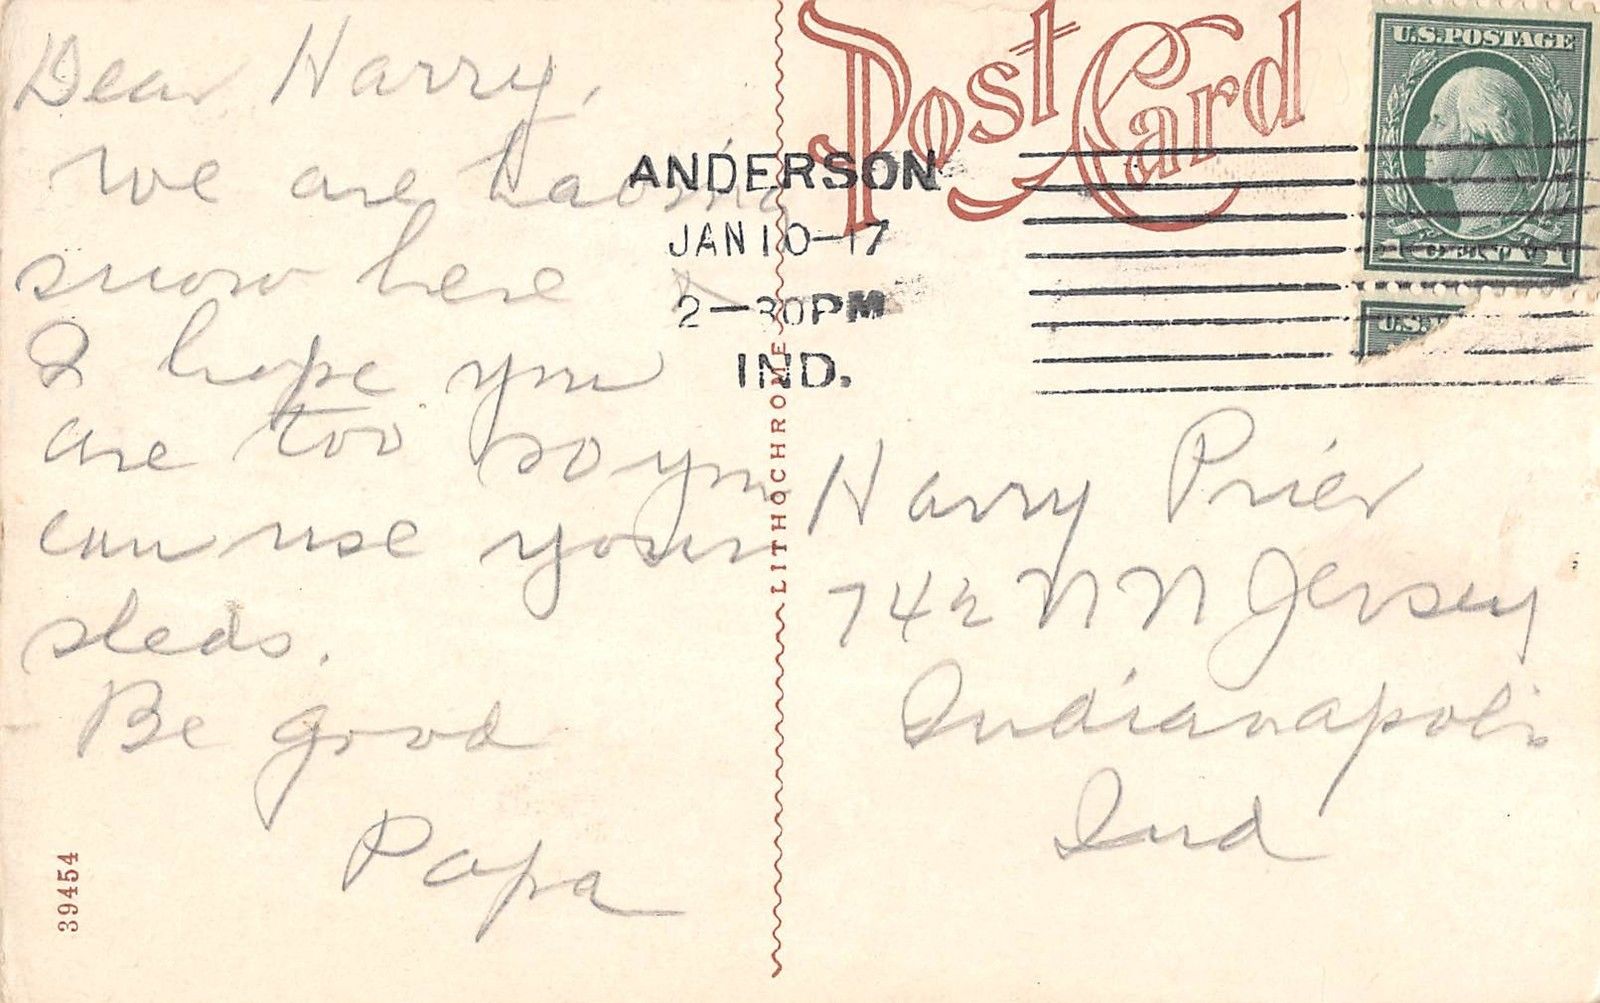 Dear Harry,
We are having
snow here
I hope you
are too so you
can use your
sleds.
Be good
Papa
39454
LITHOCHROME
Post Card
ANDERSON
JAN 10-17
2-30PM
IND.
U.S. POSTAGE
U.S.
Harry Prier
742 N N Jersey
Indianapolis
Ind